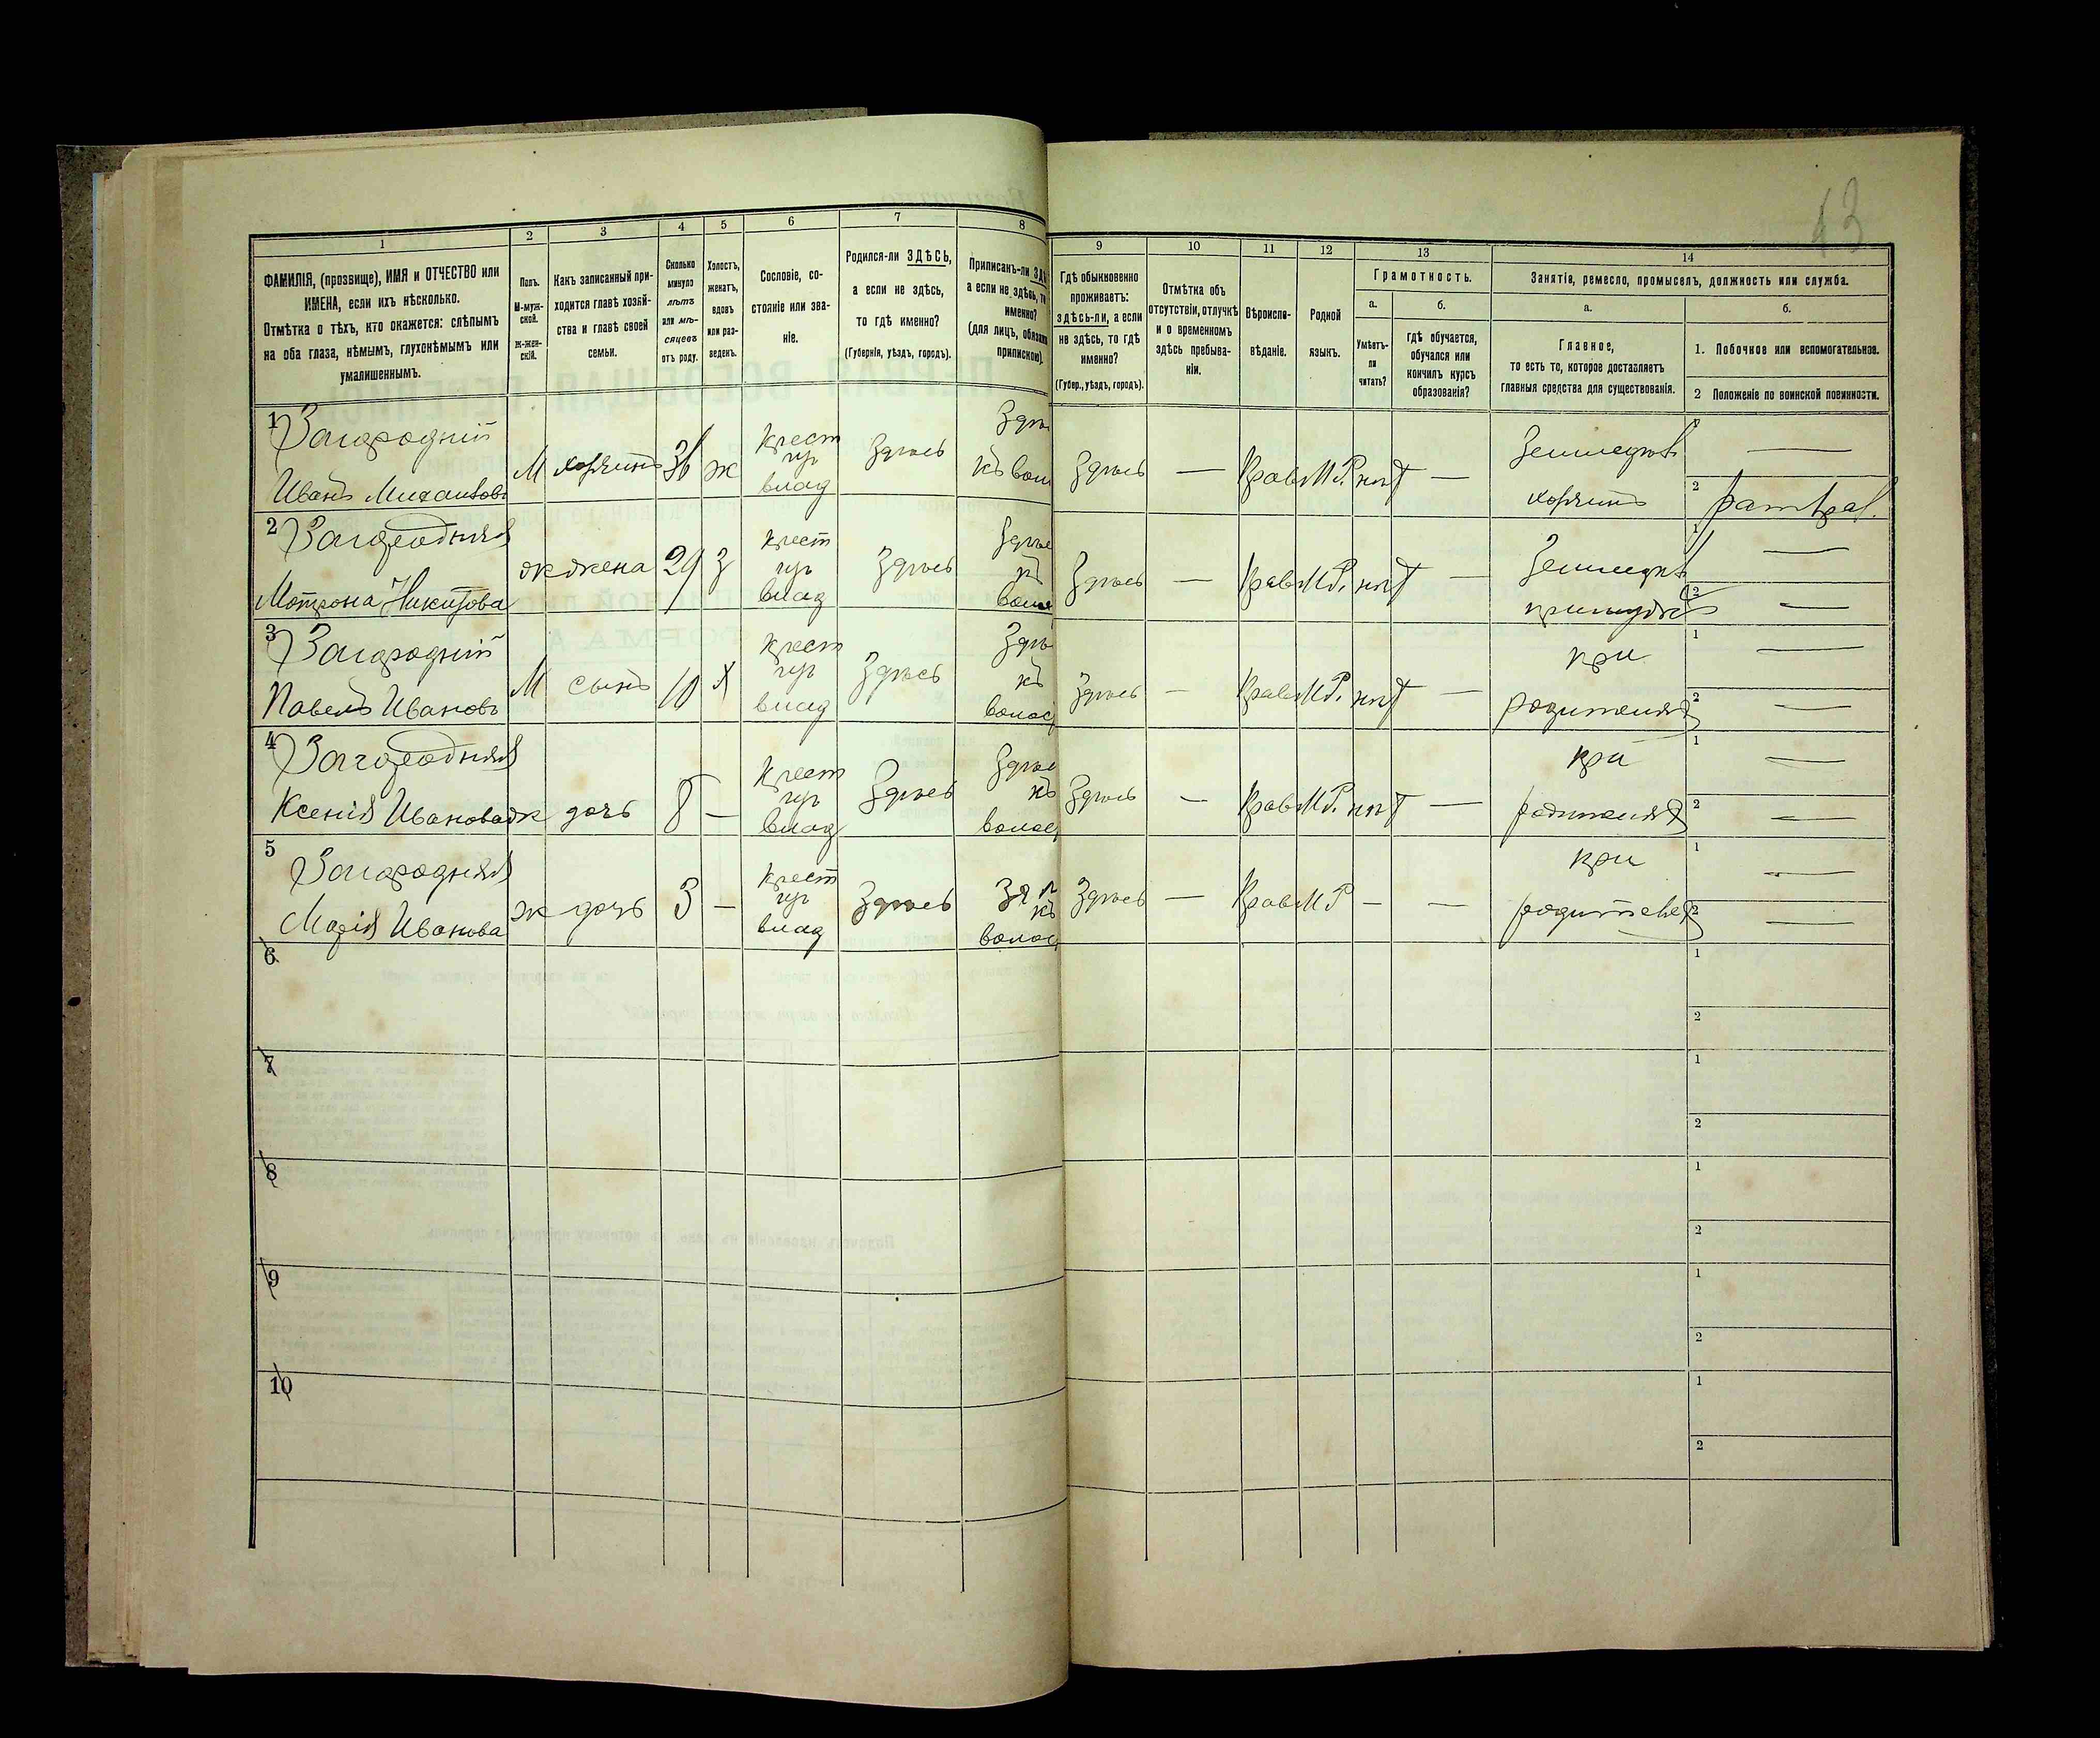 43
1 2 3 4 5 6 7 8 9 10 11 12 13 14
ФАМИЛІЯ, (прозвище), ИМЯ и ОТЧЕСТВО или
ИМЕНА, если ихъ нѣсколько.
Отмѣтка о тѣхъ, кто окажется: слѣпымъ
на оба глаза, нѣмымъ, глухонѣмымъ или
умалишеннымъ.
Полъ.
М-муж-
ской.
ж-жен-
скій.
Какъ записанный при-
ходится главѣ хозяй-
ства и главѣ своей
семьи.
Сколько
минуло
лѣтъ
или мѣ-
сяцевъ
отъ роду.
Холостъ,
женатъ,
вдовъ
или раз-
веденъ.
Сословіе, со-
стояніе или зва-
ніе.
Родился-ли ЗДѢСЬ,
а если не здѣсь,
то гдѣ именно?
(Губернія, уѣздъ, городъ).
Приписанъ-ли
а если не здѣсь,
именно?
(для лицъ,
припискою).
Гдѣ обыкновенно
проживаетъ:
здѣсь-ли, а если
не здѣсь, то гдѣ
именно?
(Губер., уѣздъ, городъ).
Отмѣтка объ
отсутствіи, отлучкѣ
и о временномъ
здѣсь пребыва-
ніи.
Вѣроиспо-
вѣданіе.
Родной
языкъ.
Грамотность.
а.
Умѣетъ-
ли
читать?
б.
гдѣ обучается,
обучался или
кончилъ курсъ
образованія?
Занятіе, ремесло, промыселъ, должность или служба.
а.
Главное,
то есть то, которое доставляетъ
главныя средства для существованія.
б.
1. Побочное или вспомогательное.
2 Положеніе по воинской повинности.
1 Загородній
Иванъ Михаиловъ
М хозяинъ 36 ж
Крест
влад
Здѣсь
Здѣсь — Прав М.Р. нѣт —
Земледѣл
хозяинъ
1 —
2
2 Загородняя
Мотрона Никитова
ж жена 29 З
Крест
влад
Здѣсь
Здѣсь — Прав М.Р. нѣт —
Земледѣл
1 —
2 —
3 Загородній
Павелъ Ивановъ
М сынъ 10 х
Крест
влад
Здѣсь
Здѣсь — Прав М.Р. нѣт —
при
родителях
1 —
2 —
4 Загородняя
Ксенія Иванова
ж дочь 8 —
Крест
влад
Здѣсь
Здѣсь — Прав М.Р. нѣт —
при
родителях
1 —
2 —
5 Загородняя
Марія Иванова
ж дочь 3 —
Крест
влад
Здѣсь
Здѣсь — Прав М Р — —
при
родителях
1 —
2 —
6 1
2
7 1
2
8 1
2
9 1
2
10 1
2